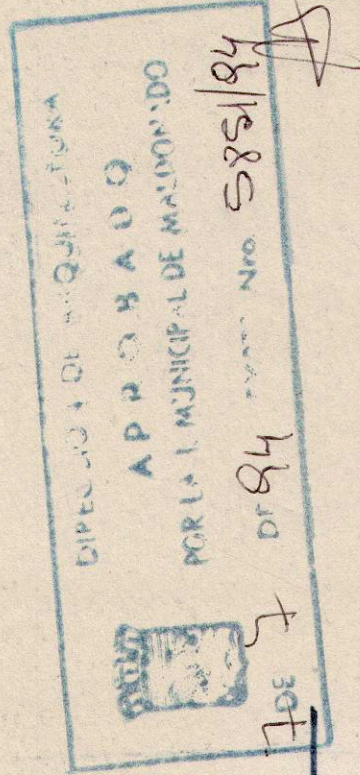 DIRECCION DE ARQUITECTURA
APROBADO
POR LA I. MUNICIPAL DE MALDONADO
7 DE 5 DE 94 Nro. 5851/94